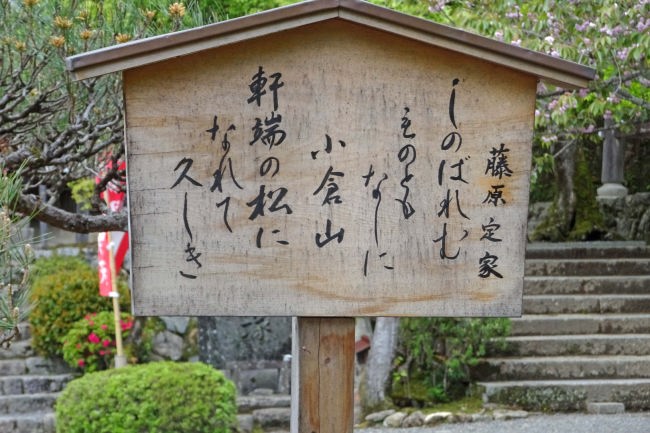 藤原定家
しのばれむ
ものとも
なしに
小倉山
軒端の松に
なれて
久しき